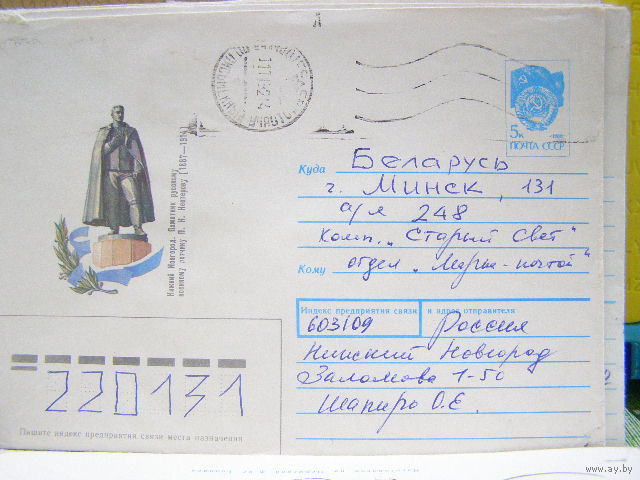 5к
ПОЧТА СССР
Нижний Новгород. Памятник русскому
военному летчику П. Н. Нестерову (1887—1914)
Куда Беларусь
г. Минск, 131
а/я 248
комп. „Старый Свет"
Кому отдел „Марки - почтой"
Индекс предприятия связи и адрес отправителя
603109 Россия
Нижний Новгород
Заломова 1-50
Шапиро О.Е.
220131
Пишите индекс предприятия связи места назначения
www.ay.by